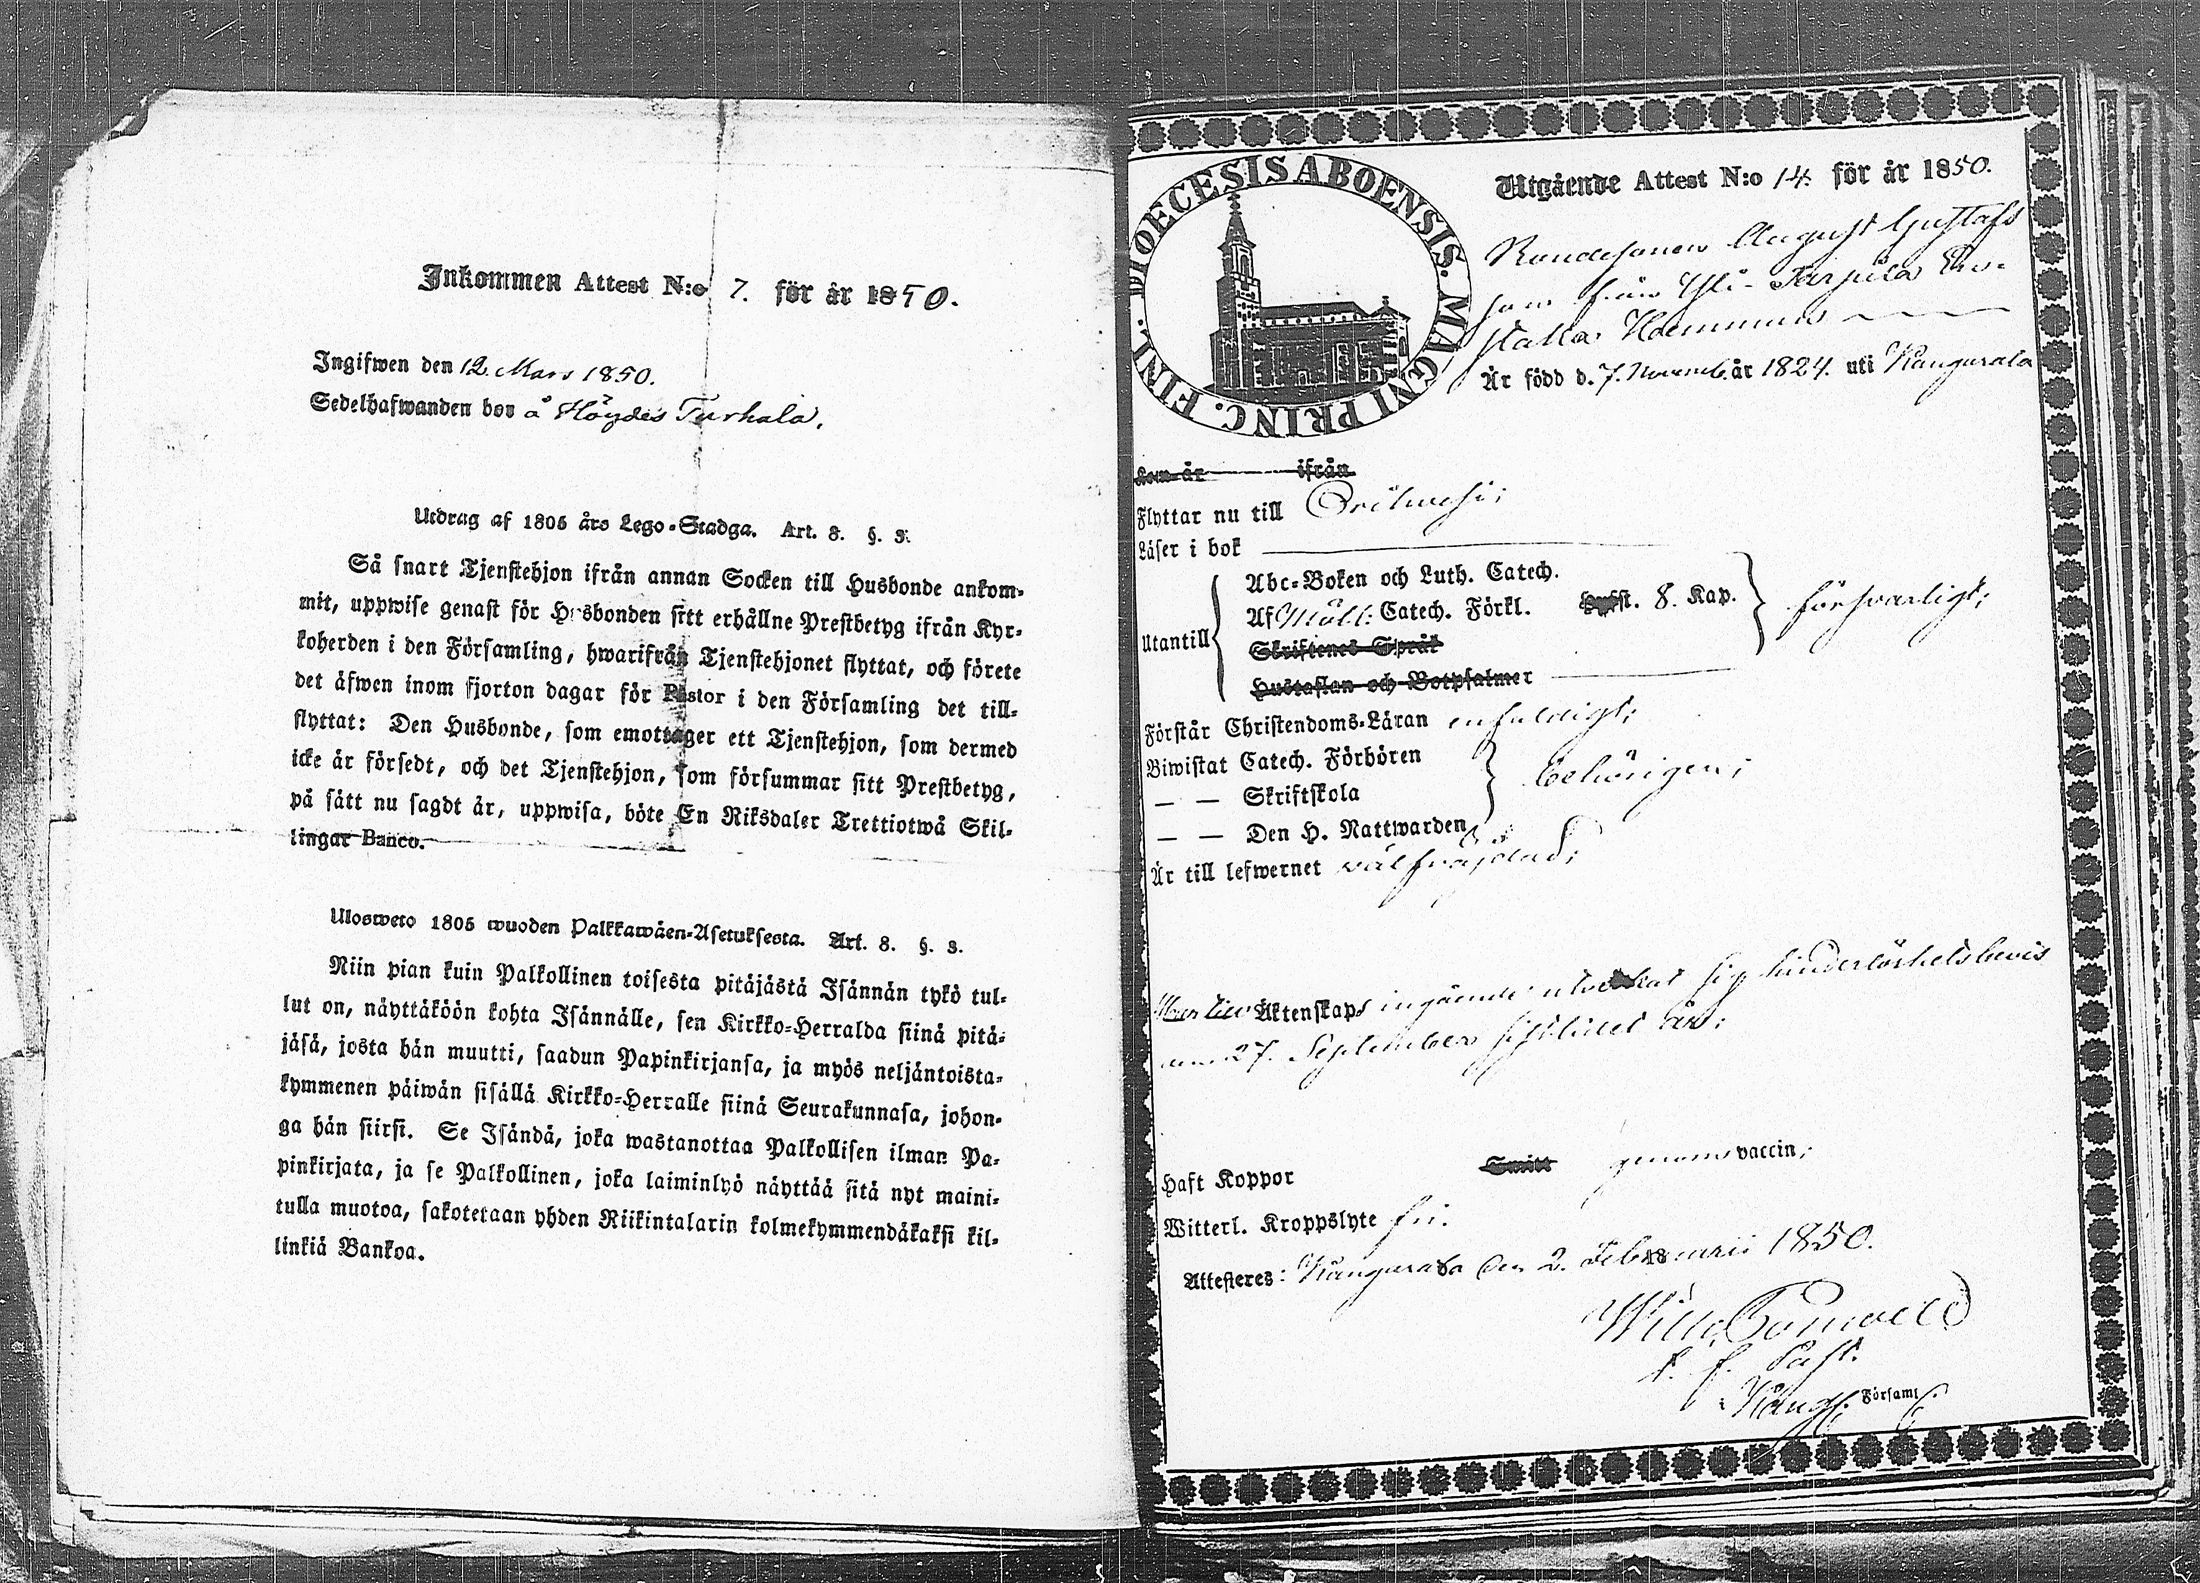 Inkommen Attest N:o 7. för år 1850.
Ingifwen den 12. Mars 1850.
Sedelhafwanden bor å Höydes Turkala.
Utdrag af 1805 års Lego-Stadga. Art. 8. §. 3.
Så snart Tjenstehjon ifrån annan Socken till Husbonde ankom-
mit, uppwise genast för Husbonden sitt erhållne Prestbetyg ifrån Kyr-
koherden i den Församling, hwarifrån Tjenstehjonet flyttat, och förete
det äfwen inom fjorton dagar för Pastor i den Församling det till-
flyttat: Den Husbonde, som emottager ett Tjenstehjon, som dermed
icke är försedt, och det Tjenstehjon, som försummar sitt Prestbetyg,
på sätt nu sagdt är, uppwisa, böte En Riksdaler Trettiotwå Skil-
lingar Banco.
Ulosweto 1805 wuoden Palkkawäen-Asetuksesta. Art. 8. §. 3.
Niin pian kuin Palkollinen toisesta pitäjästä Isännän tykö tul-
lut on, näyttäköön kohta Isännälle, sen Kirkko-Herralda siinä pitä-
jäsä, josta hän muutti, saadun Papinkirjansa, ja myös neljäntoista-
kymmenen päiwän sisällä Kirkko-Herralle siinä Seurakunnasa, johon-
ga hän siirsi. Se Isändä, joka wastanottaa Palkollisen ilman Pa-
pinkirjata, ja se Palkollinen, joka laiminlyö näyttää sitä nyt maini-
tulla muotoa, sakotetaan yhden Riikintalarin kolmekymmendäkaksi kil-
linkiä Bankoa.
DIOECESIS ABOENSIS. MAGNI PRINC. FINL.
Utgående Attest N:o 14. för år 1850.
Bondesonen August Gustafs
son från Yli-Tarpila
Är född d. 7. Novemb. år 1824. uti Kangasala
Kom år ifrån
Flyttar nu till Orihwesi;
Läser i bok
Abc-Boken och Luth. Catech.
Utantill Af Möll: Catech. Förkl. Hufst. 8. Kap. försvarligt;
Skriftenes Språk
Hustaflan och Botpsalmer
Förstår Christendoms-Läran enfaldigt;
Biwistat Catech. Förhören
— — Skriftskola behörigen;
— — Den H. Nattwarden
Är till lefwernet välfräjdad;
Äktenskaps ingående uttagat sig hinderlöshetsbevis
27. September sistlidet år;
Haft Koppor Smitt genom vaccin;
Witterl. Kroppslyte fri.
Attesteres: Kangasala den 2. Februarii 18 1850.
t. f. Past.
Kang: Församl